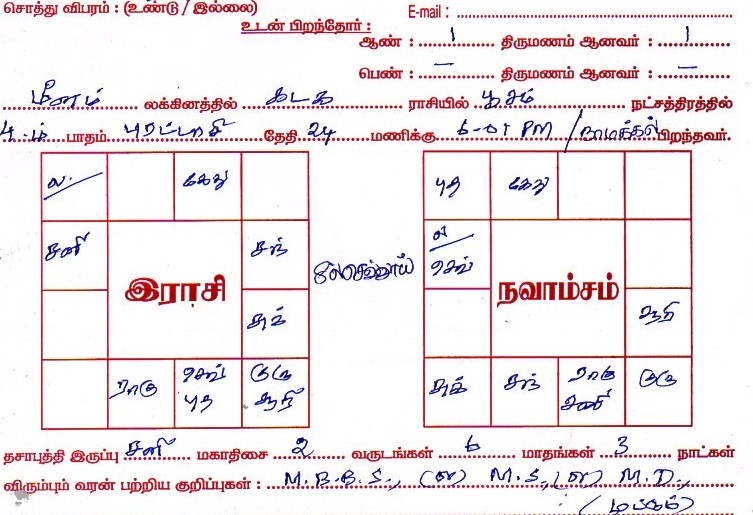 சொத்து விபரம் : (உண்டு / இல்லை) E-mail :
உடன் பிறந்தோர் :
ஆண் : 1 திருமணம் ஆனவர் : 1
பெண் : – திருமணம் ஆனவர் : –
மீனம் லக்கினத்தில் கடக ராசியில் பூசம் நட்சத்திரத்தில்
4-ம் பாதம் புரட்டாசி தேதி 24 மணிக்கு 6-01 PM / நாமக்கல் பிறந்தவர்.
ல. கேது
சனி சந்
இராசி
சுக்
ராகு செவ் புத குரு சூரி
புத கேது
ல செவ்
நவாம்சம்
சூரி
சுக் சந் ராகு சனி குரு
தசாபுத்தி இருப்பு சனி மகாதிசை 2 வருடங்கள் 6 மாதங்கள் 3 நாட்கள்
விரும்பும் வரன் பற்றிய குறிப்புகள் : M.B.B.S., (or) M.S., (or) M.D.,